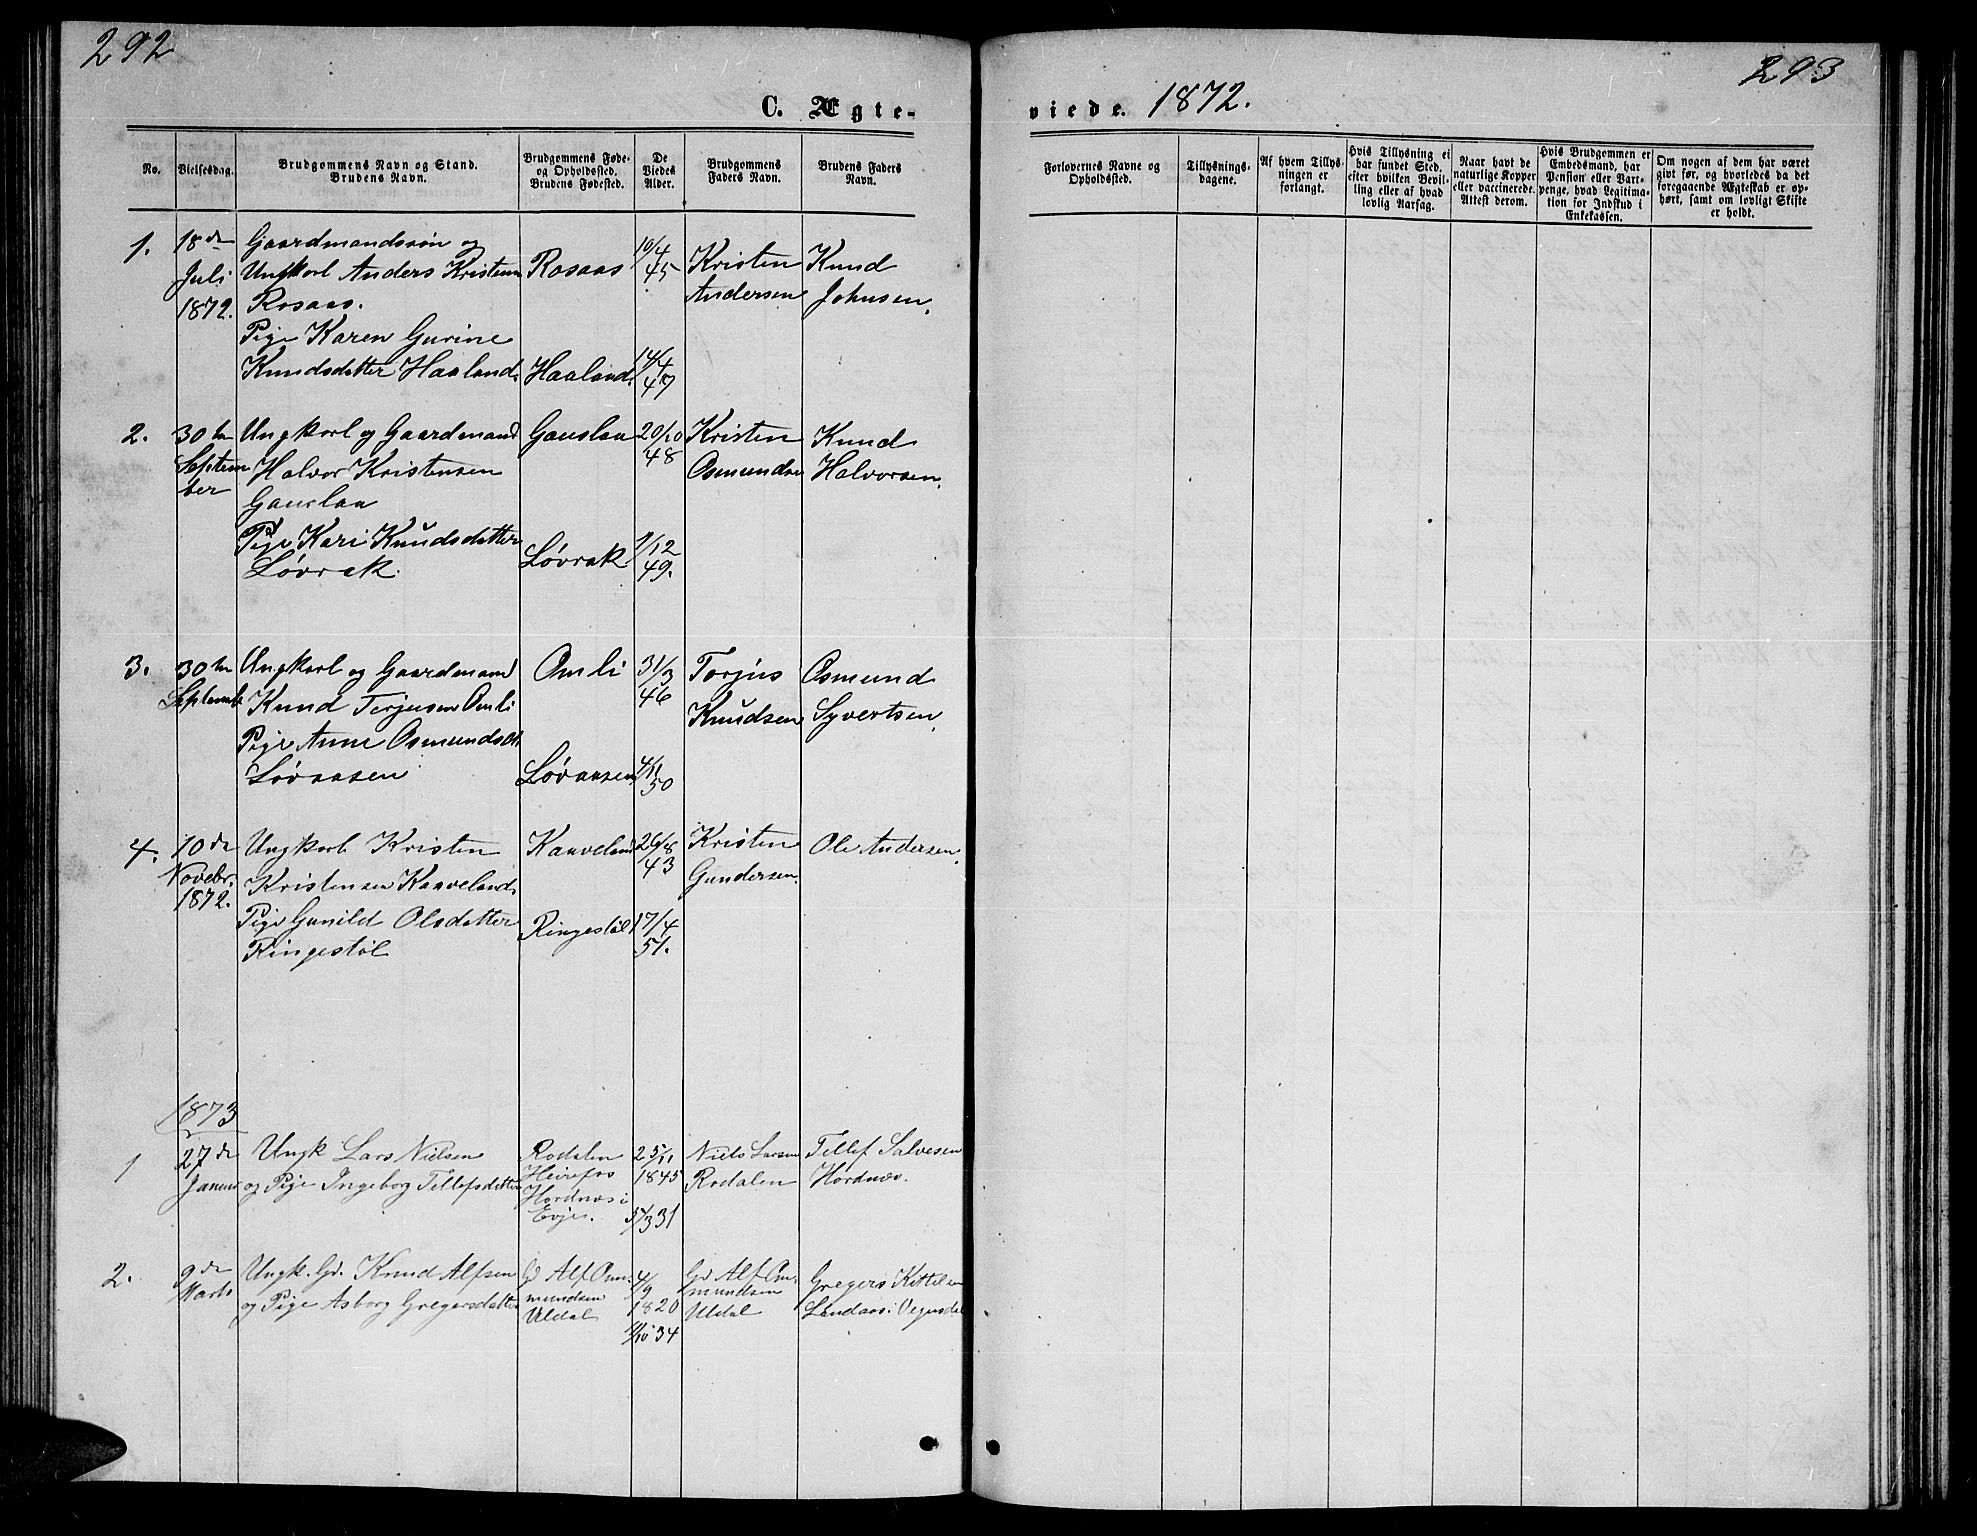 292
293
C. Ægte-
viede. 1872.
No.
Vielsesdag.
Brudgommens Navn og Stand.
Brudens Navn.
Brudgommens Føde-
og Opholdssted.
Brudens Fødested.
De
Viedes
Alder.
Brudgommens
Faders Navn.
Brudens Faders
Navn.
Forlovernes Navne og
Opholdssted.
Tillysnings-
dagene.
Af hvem Tillys-
ningen er
forlangt.
Hvis Tillysning ei
har fundet Sted,
efter hvilken Bevil-
ling eller af hvad
lovlig Aarsag.
Naar havt de
naturlige Kopper
eller vaccinerede.
Attest derom.
Hvis Brudgommen er
Embedsmand, har han
Pension eller Vart-
penge, hvad Legitima-
tion for Indskud i
Enkekassen.
Om nogen af dem har været
givt før, og hvorledes da det
foregaaende Ægteskab er op-
hørt, samt om lovligt Skifte
er holdt.
1.
18de
Juli
1872.
Gaardmandssøn og
Ungkarl Anders Kristensen
Rosaas.
Pige Karen Gurine
Knudsdatter Haaland.
Rosaas
Haaland.
10/4
45
14/4
47
Kristen
Andersen
Knud
Johnsen.
2.
30te
Septem
ber
Ungkarl og Gaardmand
Halvor Kristensen
Gauslaa
Pige Kari Knudsdatter
Løvrak.
Gauslaa
Løvrak
20/10
48
1/12
49.
Kristen
Osmundsen
Knud
Halvorsen.
3.
30te
Septemb
Ungkarl og Gaardmand
Knud Terjusen Omli
Pige Anne Osmundsdt
Løvaasen
Omli
Løvaasen
31/3
46
4/11
50
Torjus
Knudsen
Osmund
Syvertsen.
4.
10de
Novebr.
1872.
Ungkarl Kristen
Kristensen Kaaveland.
Pige Gunild Olsdatter
Ringestøl
Kaaveland
Ringestøl
26/8
43
17/4
51.
Kristen
Gundersen.
Ole Andersen.
1873
1
27de
Januar
Ungk Lars Nielsen
og Pige Ingeborg Tellefsdatter
Rodalen
Heirefos
Hordnæs i
Evje.
25/11
1845
5/3 31
Niels Larsen
Rodalen
Tellef Salvesen
Hordnæs.
2.
9de
Marts
Ungk. Gd. Knud Alfsen
og Pige Asborg Gregersdatter
Gd Alf Om-
mundsen
Uldal
4/9
1820
34
Gd Alf Om-
mundsen
Uldal
Gregers Kittelsen
Landaas i Vegusdal